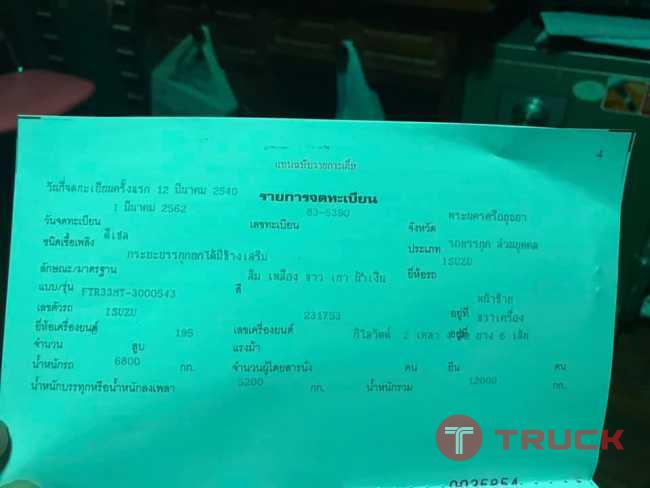 แทนฉบับรายการเดิม
4
วันที่จดทะเบียนครั้งแรก 12 มีนาคม 2540
รายการจดทะเบียน
1 มีนาคม 2562
83-5390
พระนครศรีอยุธยา
วันจดทะเบียน เลขทะเบียน จังหวัด
ชนิดเชื้อเพลิง ดีเซล ประเภท รถบรรทุก ส่วนบุคคล
กระบะบรรทุกยกได้มีข้างเสริม
ISUZU
ลักษณะ/มาตรฐาน สี ส้ม เหลือง ขาว เทา น้ำเงิน ยี่ห้อรถ
แบบ/รุ่น FTR33HT-3000543
เลขตัวรถ อยู่ที่ หน้าซ้าย
ISUZU 231753 ขวาเครื่อง
ยี่ห้อเครื่องยนต์ เลขเครื่องยนต์ อยู่ที่
จำนวน สูบ 195 แรงม้า กิโลวัตต์ 2 เพลา ล้อ ยาง 6 เส้น
น้ำหนักรถ 6800 กก. จำนวนผู้โดยสารนั่ง คน ยืน คน
น้ำหนักบรรทุกหรือน้ำหนักลงเพลา 5200 กก. น้ำหนักรวม 12000 กก.
TRUCK
0035854